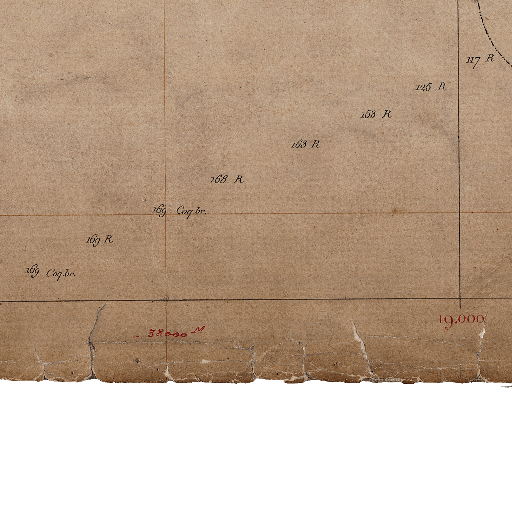 117 R
126 R
158 R
163 R
168 R
169 Coq.br.
169 R
169 Coq.br.
19.000
38000 M